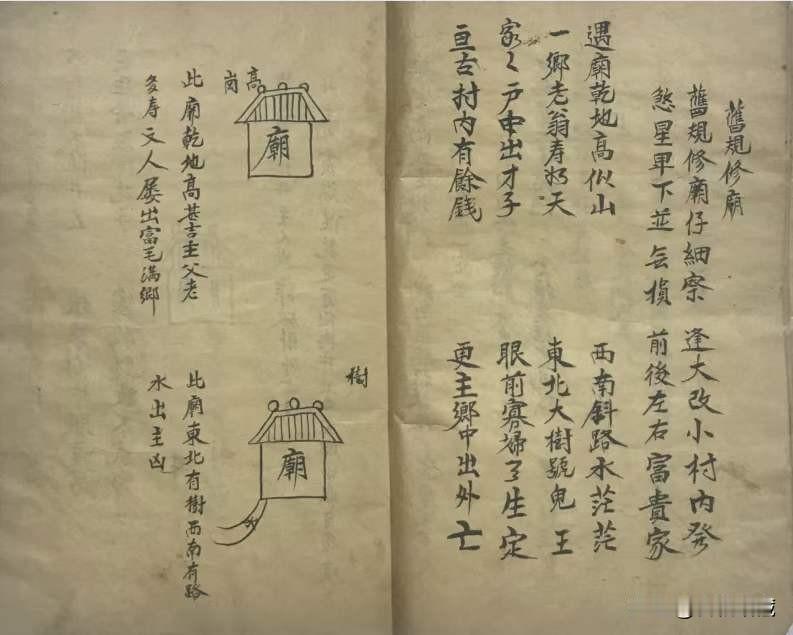 舊規修廟
舊規修廟仔細察
逢大改小村内發
煞星下並損
前後左右富貴家
遇廟乾地高似山
一鄉老翁寿如天
家々户中出才子
亘古村内有餘錢
西南斜路水茫茫
東北大樹號鬼王
眼前寡婦了生定
更主鄉中出外亡
高岗
廟
此廟乾地高甚吉主父老
多寿文人屡出富毛满鄉
樹
廟
此廟東北有樹西南有路
水出主凶